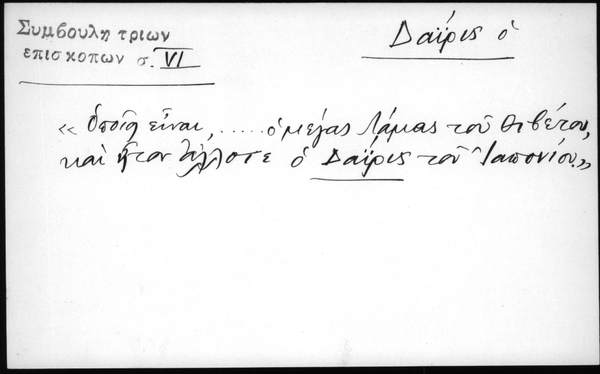 Συμβουλη τριων
επισκοπων σ. VI
Δαΐρις ὁ
« ὁποῖος εἶναι, ..... ὁ μέγας Λάμας τοῦ Θιβέτου,
καὶ ἦτον ἄλλοτε ὁ Δαΐρις τοῦ Ἰαπονίου.»